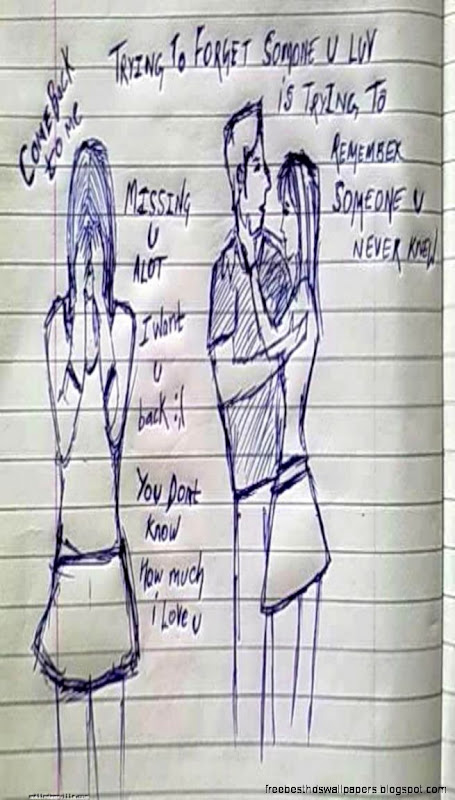 TRYING TO FORGET SOMONE U LUV
IS TRYING TO
REMEMBER
SOMEONE U
NEVER KNEW
COME BACK
to ME
MISSING
U
ALOT
I want
U
back :(
YOU DONT
KNOW
How much
i Love u
freebesthdswallpapers.blogspot.com